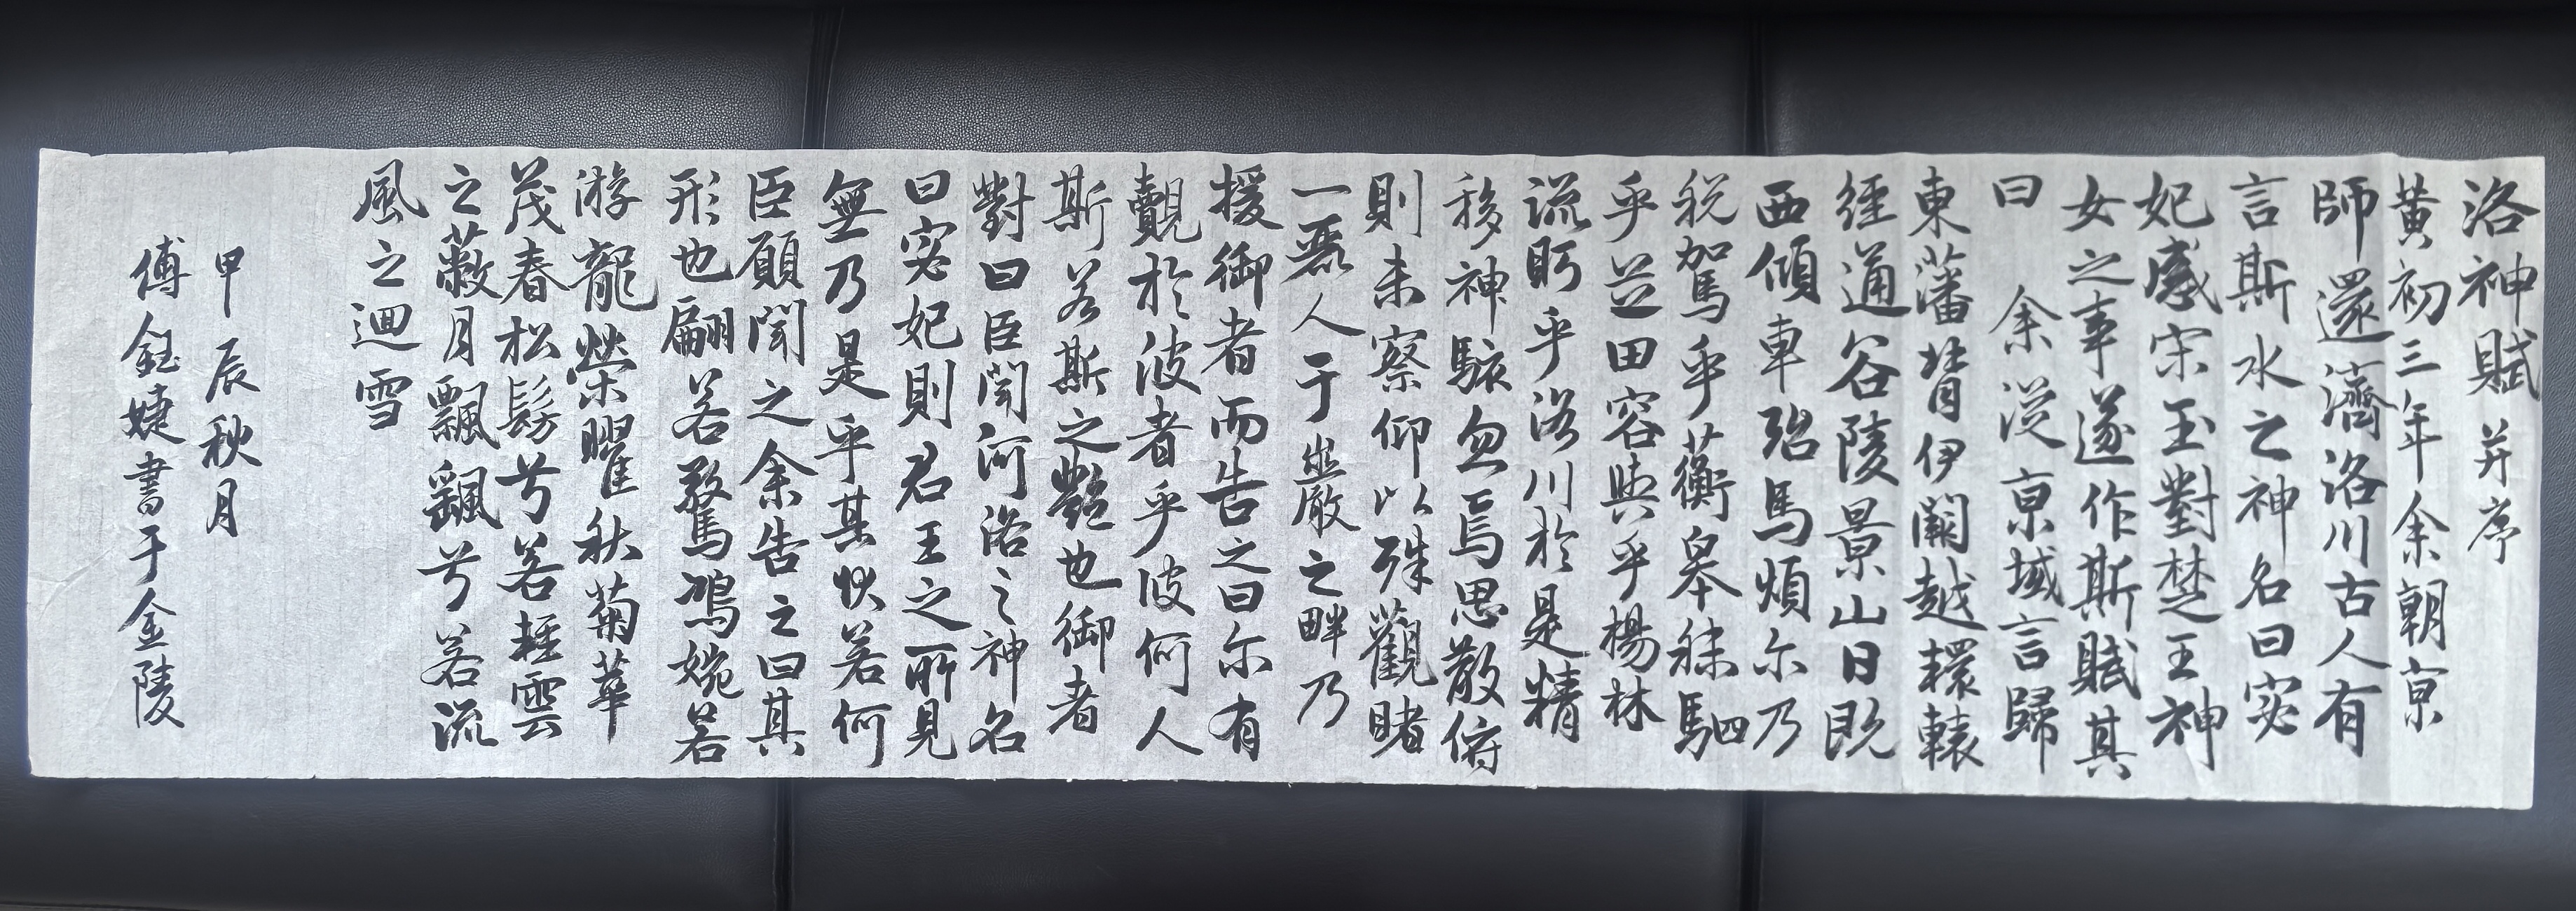 洛神賦并序
黄初三年余朝京
師還濟洛川古人有
言斯水之神名曰宓
妃感宋玉對楚王神
女之事遂作斯賦其
曰余從京域言歸
東藩背伊闕越轘轅
經通谷陵景山日既
西傾車殆馬煩尔乃
税駕乎蘅皋秣駟
乎芝田容與乎楊林
流眄乎洛川於是精
移神駭忽焉思散俯
則未察仰以殊觀睹
一麗人于巖之畔乃
援御者而告之曰尔有
覿於彼者乎彼何人
斯若斯之艷也御者
對曰臣聞河洛之神名
曰宓妃則君王之所見
無乃是乎其狀若何
臣願聞之余告之曰其
形也翩若驚鴻婉若
游龍榮曜秋菊華
茂春松髣兮若輕雲
之蔽月飄颻兮若流
風之迴雪
甲辰秋月
傅鈺婕書于金陵